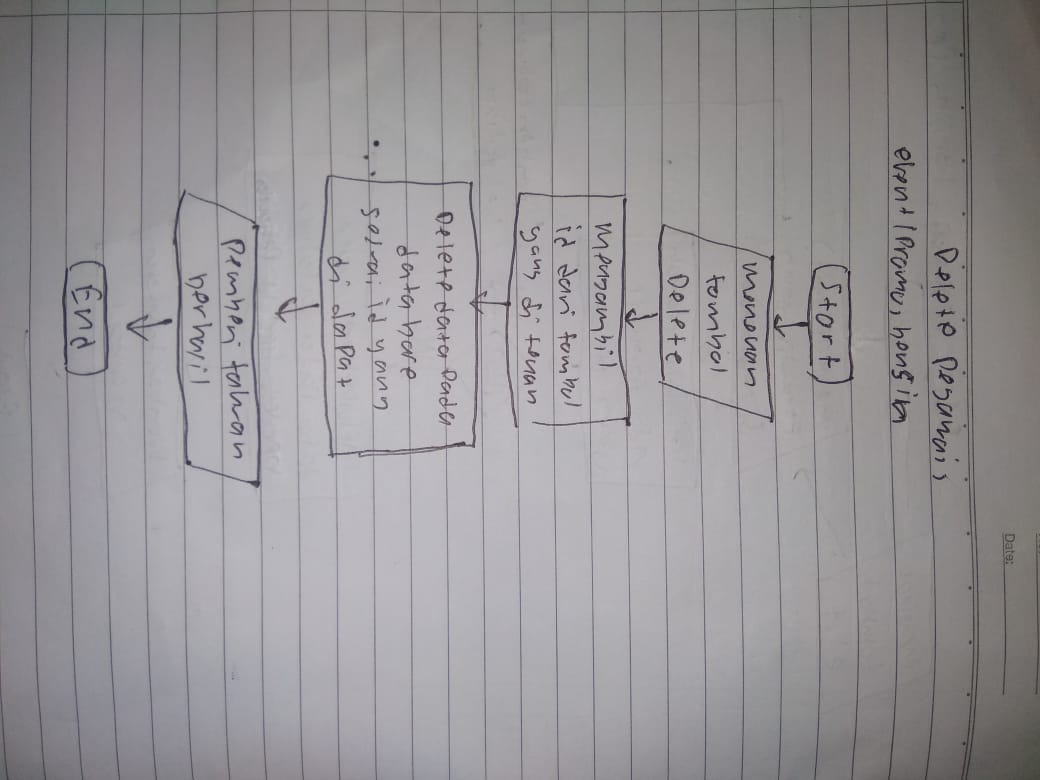 Date:
Delete Pegawai,
event/Promo, bengkin
Start
Menekan
tombol
Delete
Mengambil
id dari tombol
yang di tekan
Delete data pada
data base
sesuai id yang
di dapat
Pemberi tahuan
berhasil
End